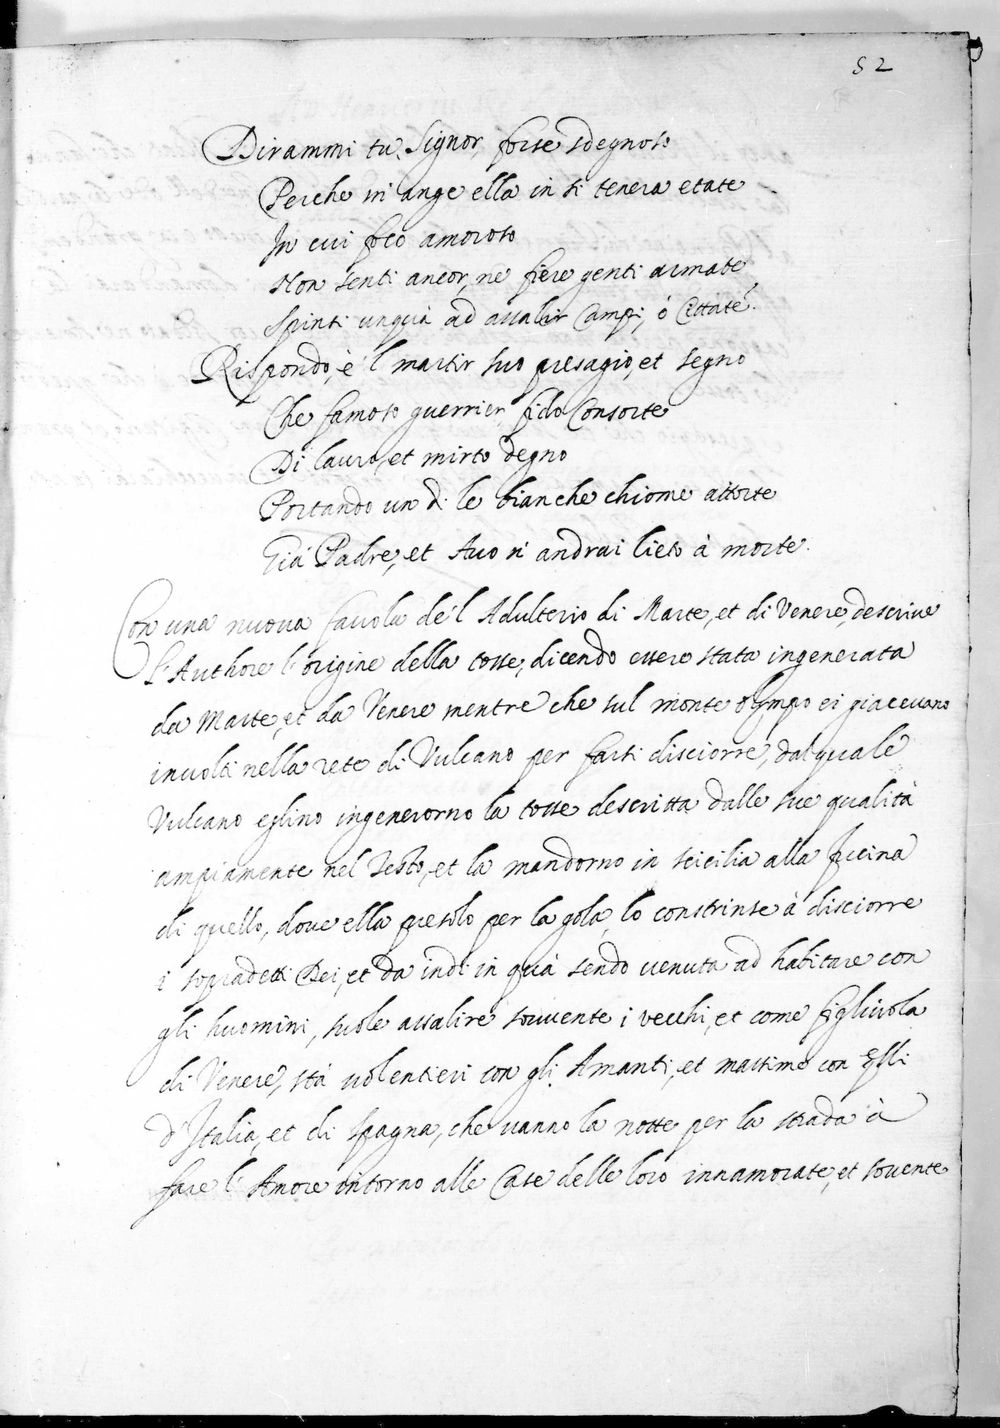 52
Dirammi tu, Signor, forse sdegnoso
Perche m'ange ella in si tenera etate
In cui foco amoroso
Non senti ancor, ne fiere genti armate,
Spinti unquà ad assalir Campi, ò Cittate?
Rispondo, è 'l martir suo presagio, et segno
Che famoso guerrier, fido Consorte
Di lauro, et mirto degno
Portando un dì le bianche chiome attorte
Già Padre, et Avo n'andrai lieto à morte.
Con una nuova favola de'l Adulterio di Marte, et di Venere, descrive
l'Authore l'origine della tosse, dicendo essere stata ingenerata
da Marte, et da Venere mentre che sul monte olympo ei giacevano
involti nella rete di Vulcano per farsi disciorre, dal quale
Vulcano eglino ingenerorno la tosse descritta dalle sue qualità
ampiamente nel Testo, et la mandorno in Sicilia alla fucina
di quello, dove ella presolo per la gola, lo constrinse à disciorre
i sopradetti Dei, et da indi in quà sendo venuta ad habitare con
gli huomini, suole assalire souvente i vecchi, et come figliuola
di Venere, stà volentieri con gli Amanti, et massime con qlli
d'Italia, et di Spagna, che vanno la notte per la strada à
fare l'Amore intorno alle Case delle loro innamorate, et sovente